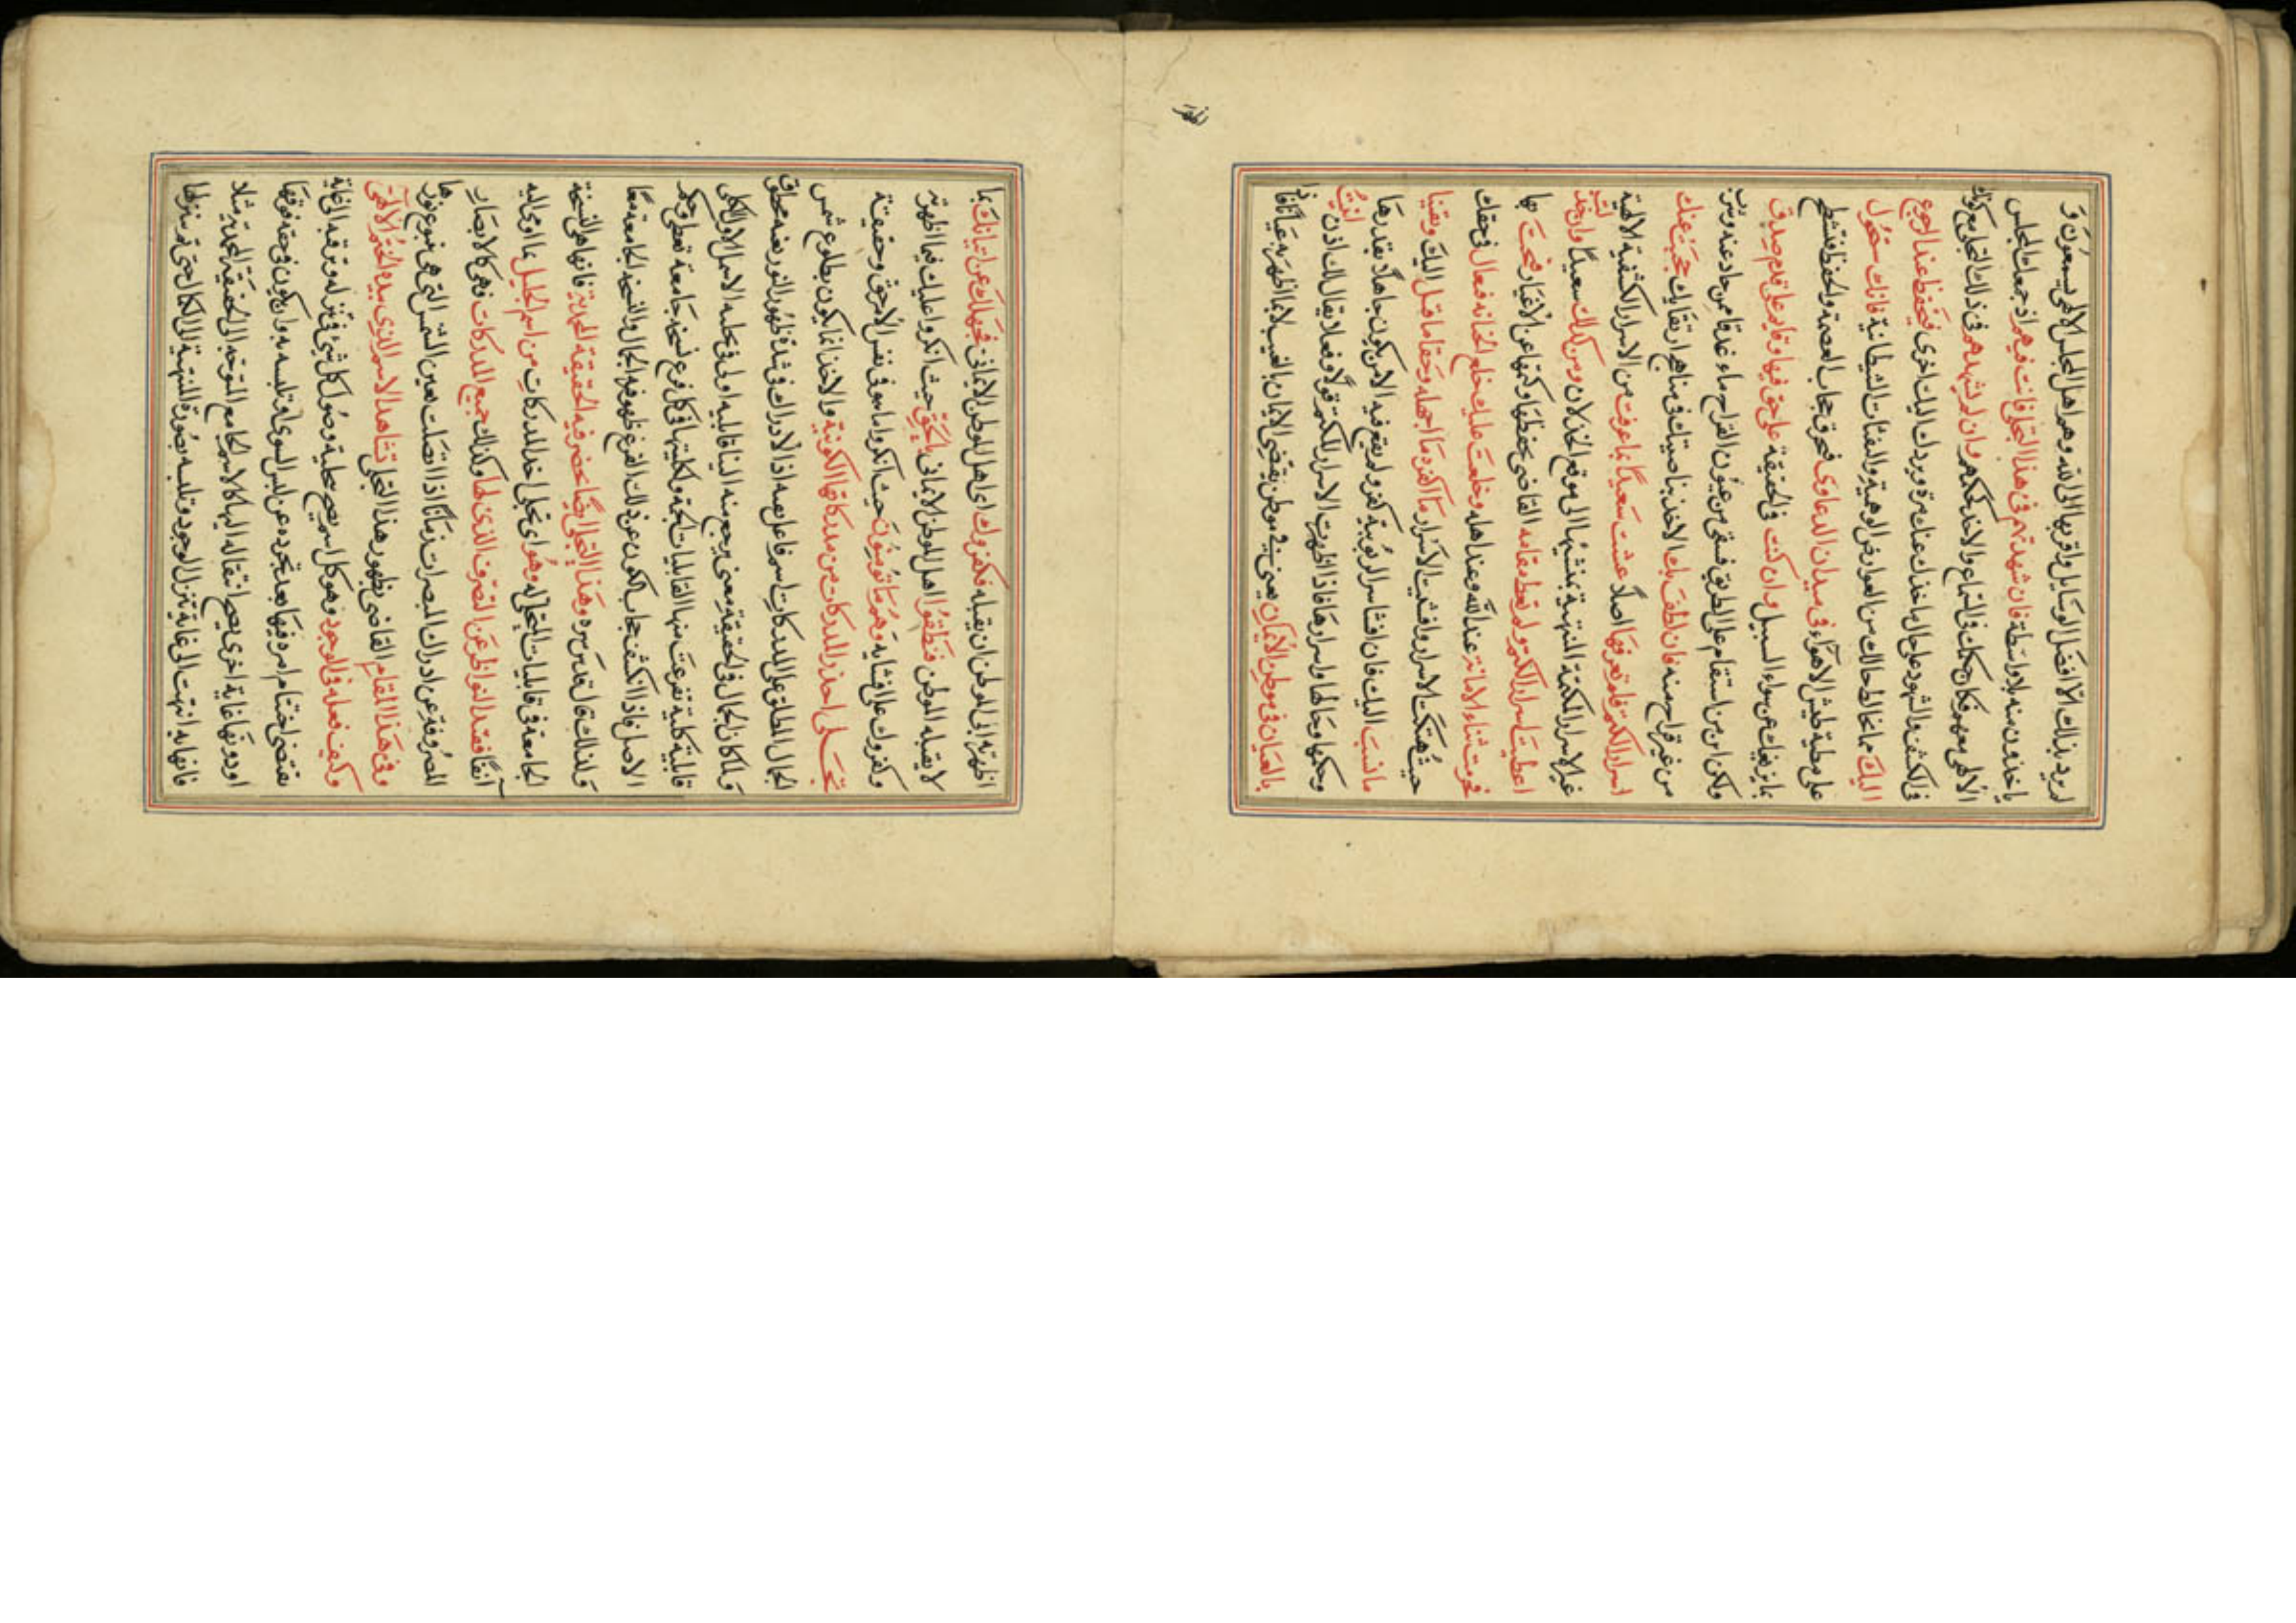 لم يرد بذلك الا افضل الوسايل واقربها الى الله وهم اهل المجلس الالهى يسمعون و
ياخذون منه بلا واسطة فان شهدتهم فى هذا التجلى فانت فيهم اذ جمعك المجلس
الالهى معهم فكان حكمك فى السماع والاخذ حكمهم وان لم تشهدهم فى ذلك التجلى مع كونك
فى الكشف والشهود على حال ياخذك عنك مرة ويردك اليك اخرى فتحفظ عند الرجوع
اليك مما يخالط حالك من العوارض الوهمية والنفثات الشيطانية فانك ستجول
على مطية طيش الاهواء فى ميدان الدعاوى فتخرق حجاب العصمة والحفظ فتشطح
بما يزيغك عن سواء السبيل وان كنت فى الحقيقة على حق فيها وقايم على قدم صدق
ولكن اين من استقام على الطريق فسقى من عيون القراح ماء غدقا ممن حاد عنه وشرب
من غير قراح منه فان لطف بك الاخذ بناصيتك فى مناهج ارتقايك حجبت عنك
اسرار الكتم فلم تعرفها اصلا عشت سعيدا بما عرفت من الاسرار الكشفية الالهية
غير الاسرار الكتمية المنتهية بمنشئها الى موقع الخذلان ومت كذلك سعيدا وان خذلت
اعطيت اسرار الكتم ولم تعط مقامه القاضى بحفظها وكتمها عن الاغيار فبحت بها
فحرمت ثناء الامانة عند الله وعند اهله وخلعت عليك خلع الخيانة فيقال فى حقك
حيث هتكت الاسرار وافشيت الاسرار ما اكفره وما اجهله وحقا ما قيل اليك ويقينا
ما نسبت اليك فان افشا سر الربوبية كفر ولم يقع فيه الا من يكون جاهلا بقدرها
وحكمها وحالها واسرارها فاذا اظهرت الاسرار الكتم قولا وفعلا يقال لك اذن اتيت
بالعيان فى موطن الايمان يعنى فى موطن يقتضى الايمان بالغيب لا بما اظهر به عيانا فاذا
اظهر
اظهرته الى الموطن ان يقبله فكفروك اى اهل الموطن الايمانى فجهلك عن اتيانك بما
لا يقبله الموطن فنطقوا اهل الموطن الايمانى بالحق حيث انكروا عليك فيما اظهرته
وكفروك على افشايه وهم ما يؤمنون حيث انكروا ما هو فى نفس الامر حق وحقيقة
تجلى اخذ المدركات من مدركاتها الكونية والاخذ انما يكون بطلوع شمس
الجمال المطلق على المدركات اسم فاعل بصه اذ الادراك فى شدة ظهور النور نفسه محال
ولما كان الجمال فى الحقيقة معنى يرجع منه الينا قابلية اولى فى محله الاصل الاول الكلى
قابلية كلية تفرعت منها القابليات الجمة وكليتها فى كل فرع نسخة جامعة تعطى حكم
الاصل فاذا انكشف حجاب الكون عن ذلك الفرع ظهر فيه الجمال والنسخة الجامعة معا
ولذلك قال قدس سره وهذا التجلى ايضا يحضر فيه الحقيقة المحمدية فانها هى النسخة
الجامعة فى قابليات المتجلى له وهو اى تجلى اخذ المدركات من اسم الجليل بما اومى اليه
آنفا فقد النواظر عن التصرف الذى لها وكذلك جميع المدركات فهى كالابصار
المصروفة عن ادراك المبصرات زمانا اذا اتصلت بعين الشمس التى هى ينبوع نورها
وفى هذا المقام القاضى بظهور هذا التجلى تشاهد الاسم الذى بيده الختم الالهى
وكيف فعله فى الوجود وهو كل اسم يصح بحكمه وصول كل شئ فى تنزله وترقيه الى غاية
يقتضى اختتام امره فيها بعد تجرده عن لبس السوى او تلبسه به وان يكون فى حقه فوقها
او دونها غاية اخرى يصح انتقاله اليها كالاسم الجامع المتوجه الى الحقيقة المحمدية مثلا
فانها به انتهت الى غاية تنزل الوجود وتلبسه بصورة المنتهية الى الكمال حتى تم تنزلها